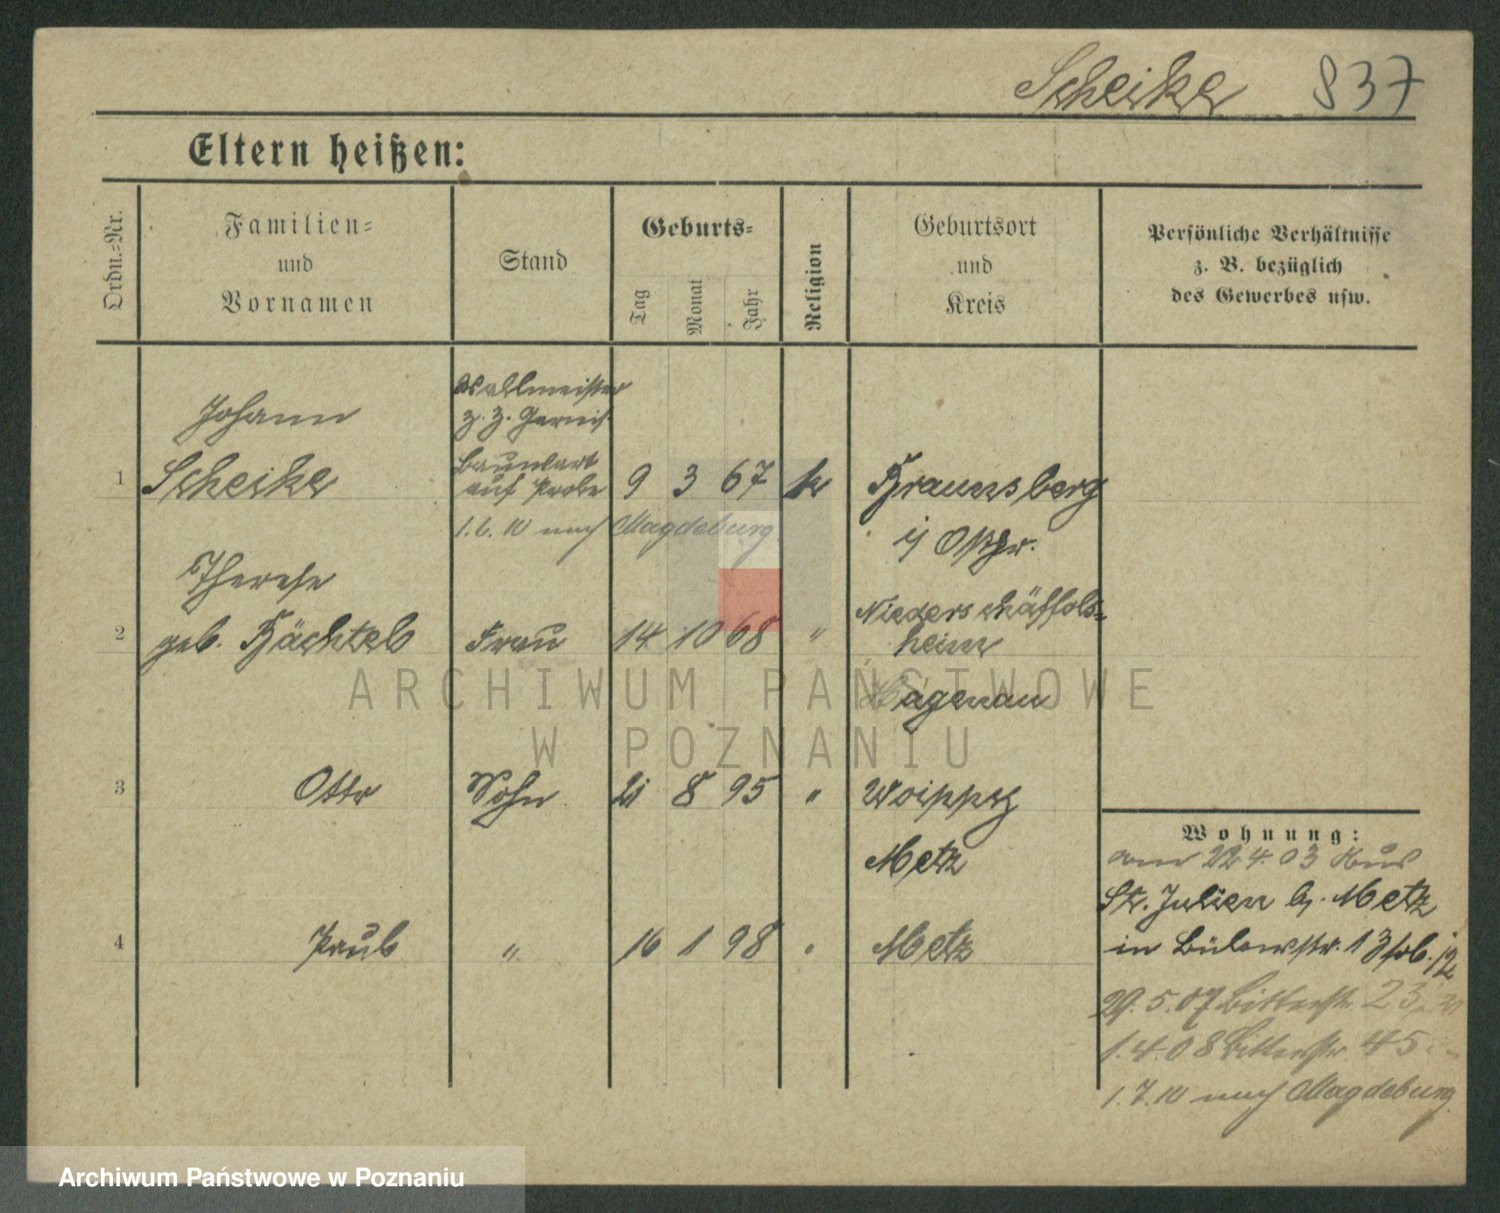 Scheike 837
Eltern heißen:
Ordn.-Nr.
Familien-
und
Vornamen
Stand
Geburts-
Tag
Monat
Jahr
Religion
Geburtsort
und
Kreis
Persönliche Verhältnisse
z. B. bezüglich
des Gewerbes usw.
Johann
Wallmeister
z. Z. Garnis.
Bauwart
auf Probe
1 Scheike 9 3 67 k Braunsberg
1. 6. 10 nach Magdeburg
i/ Ostpr.
Therese
Niederschäffols-
2 geb. Bächtel Frau 14 10 68 "
heim
Hagenau
ARCHIWUM PAŃSTWOWE
W POZNANIU
3 Otto Sohn 21 8 95 " Woippy
Metz
4 Paul " 16 1 98 " Metz
Wohnung:
am 22 4. 03 aus
St. Julien b. Metz
in Bülowstr. 13
29. 5. 07 Bitterstr. 23
1. 4. 08 Bitterstr. 45
1. 7. 10 nach Magdeburg
Archiwum Państwowe w Poznaniu